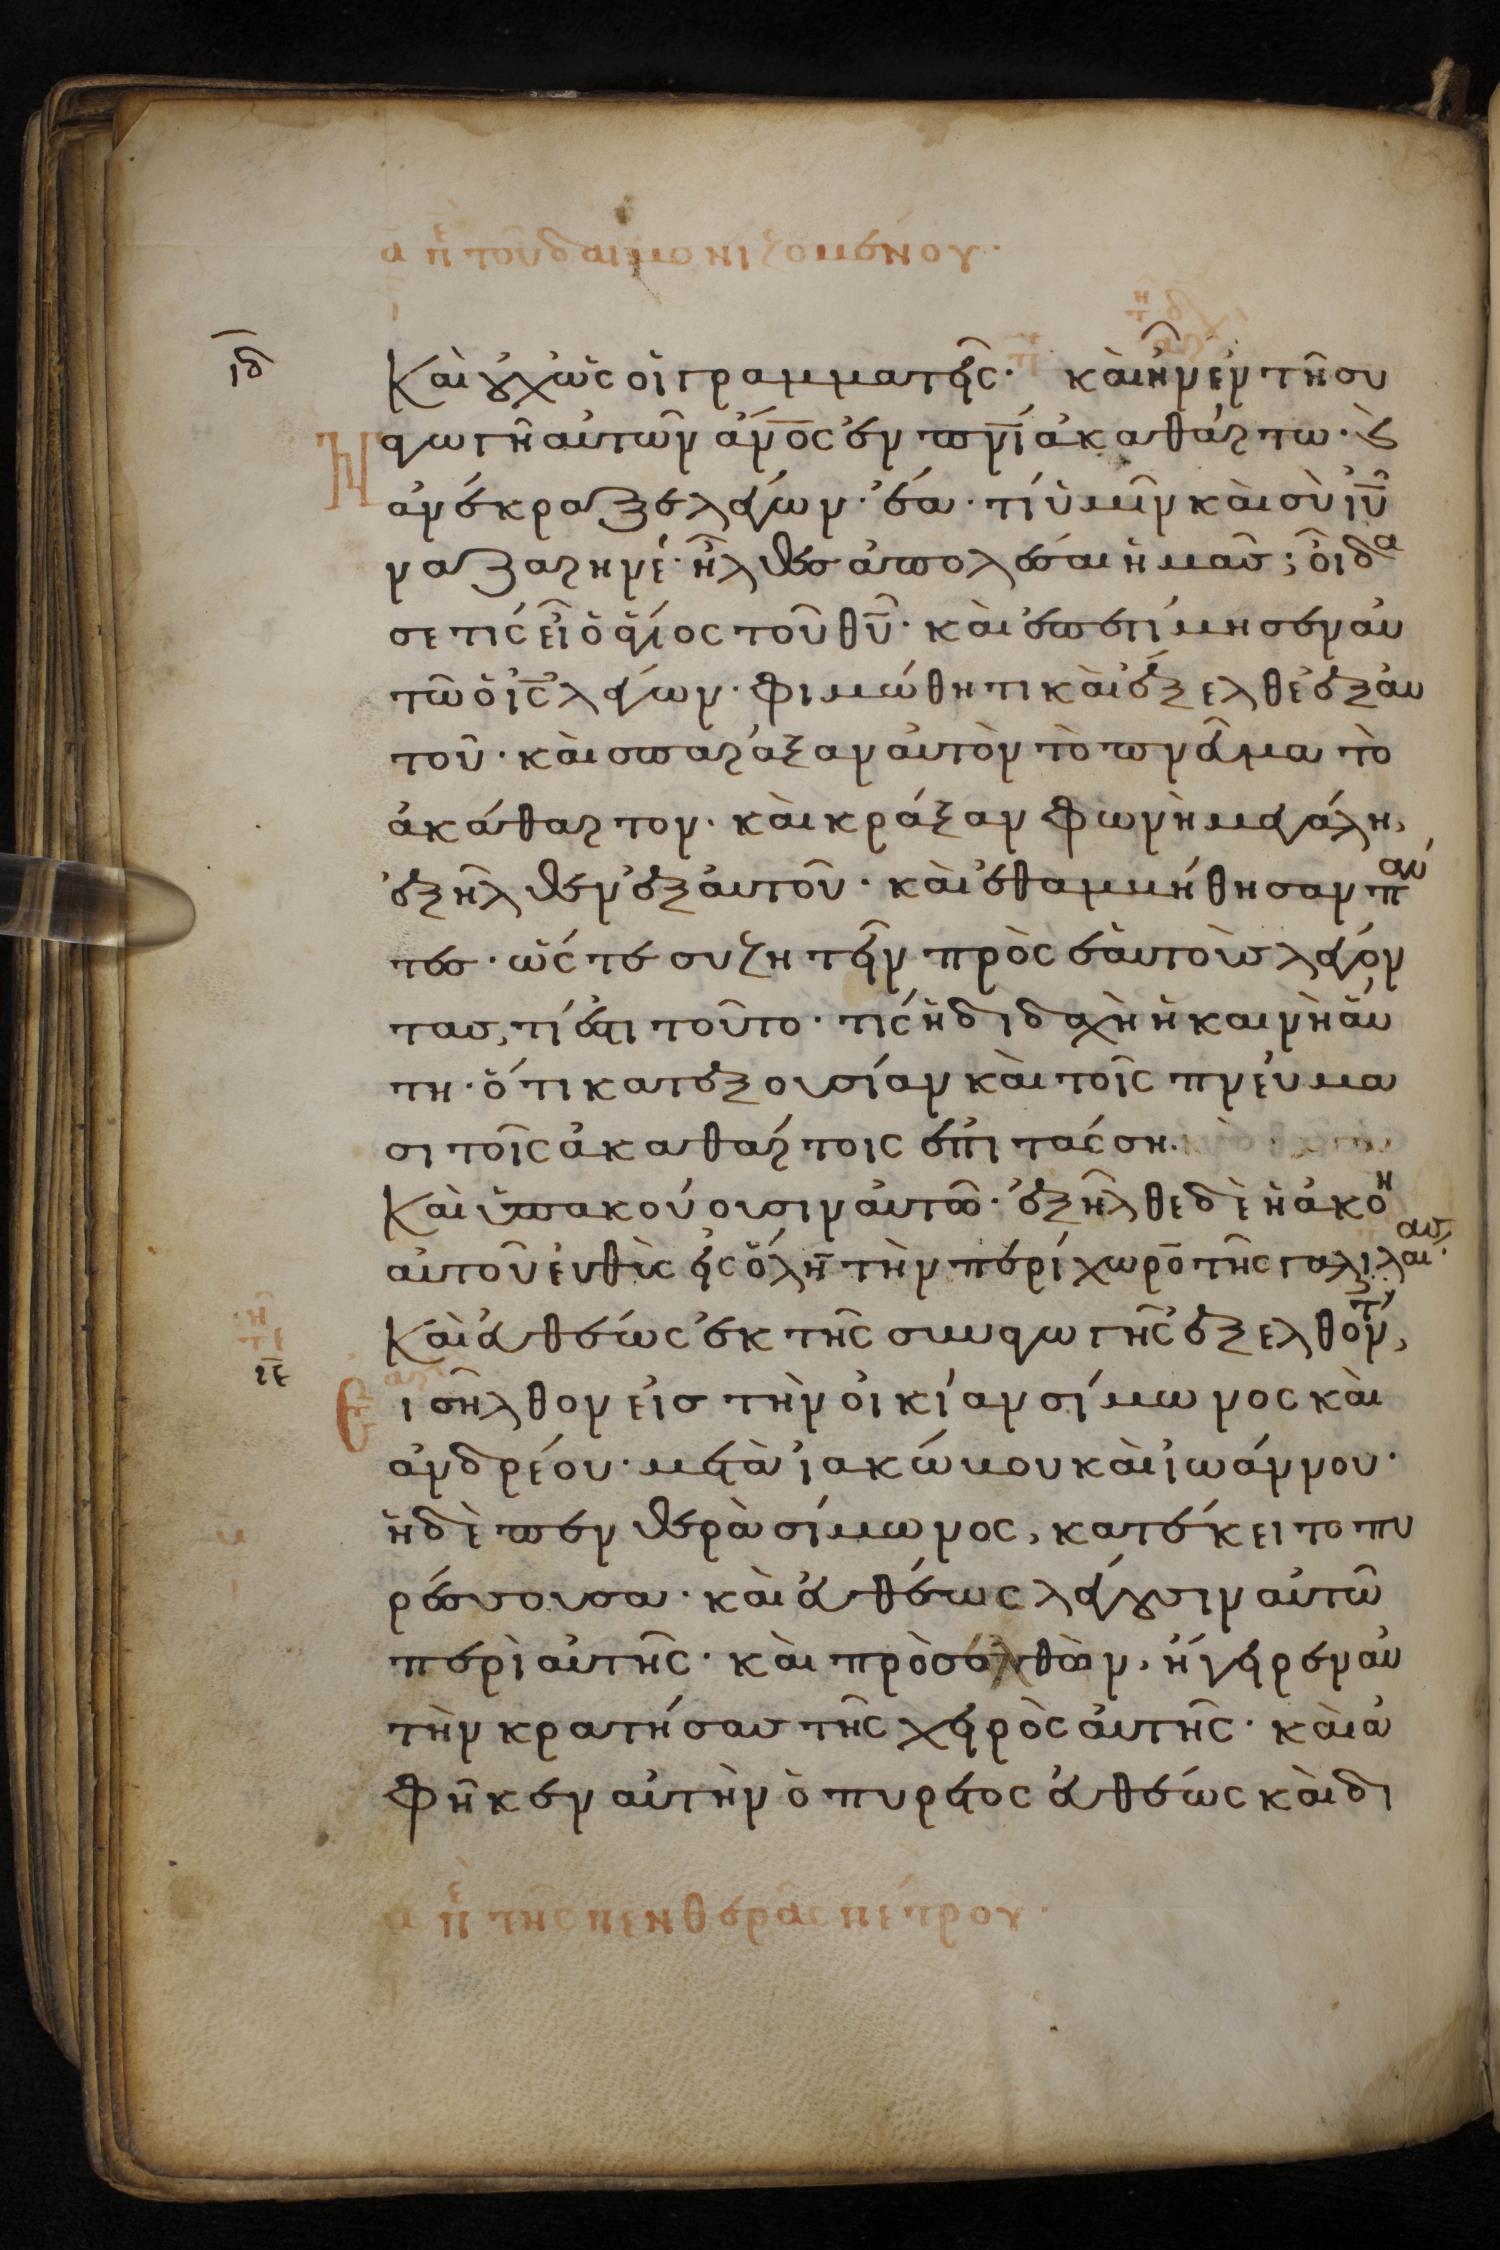 α πε τοῦ δαιμονιζομένου·
ιδ
Καὶ οὐχ ὡς οἱ γραμματεῖς· καὶ ἦν ἐν τῆ συ
ναγωγῆ αὐτῶν ἀνος ἐν πνι ἀκαθάρτω· καὶ
ἀνέκραξε λέγων· ἔα· τί ὑμῖν καὶ σὺ ιυ
ναζαρηνέ· ἦλθες ἀπολέσαι ἡμας; οἶδα
σε τίς εἶ ὁ ἅγιος τοῦ θυ· καὶ ἐπετίμησεν αὐ
τῶ ὁ ις λέγων· φιμώθητι καὶ ἔξελθε ἐξ αὐ
τοῦ· καὶ σπαράξαν αὐτὸν τὸ πνεῦμα τὸ
ἀκάθαρτον· καὶ κράξαν φωνὴ μεγάλη,
ἐξῆλθεν ἐξ αὐτοῦ· καὶ ἐθαμμήθησαν παν
τες· ὥστε συζητεῖν πρὸς ἑαυτοὺς λέγον
τας, τί ἐστι τοῦτο· τίς ἡ διδαχὴ ἡ καινὴ αὕ
τη· ὅτι κατεξουσίαν καὶ τοῖς πνεύμα
σι τοῖς ἀκαθάρτοις ἐπιτάσση·
Καὶ ὑπακούουσιν αὐτῶ· ἐξῆλθε δὲ ἡ ἀκοη
αὐτοῦ εὐθὺς εἰς ὅλην τὴν περίχωρο τῆς γαλιλαιας·
Καὶ εὐθέως ἐκ τῆς συναγωγῆς ἐξελθοντ,
ιε
Εἰσῆλθον εἰς τὴν οἰκίαν σίμωνος καὶ
ἀνδρέου· μετὰ ἰακώμου καὶ ἰωάννου·
ἡ δὲ πενθερὰ σίμωνος, κατέκειτο πυ
ρέσσουσα· καὶ εὐθέως λέγουσιν αὐτῶ
περὶ αὐτῆς· καὶ πρὸσελθὼν, ἤγειρεν αὐ
τὴν κρατήσας τῆς χειρὸς αὐτῆς· καὶ ἀ
φῆκεν αὐτὴν ὁ πυρετος εὐθέως καὶ δι
α πε τῆς πενθερᾶς πέτρου·